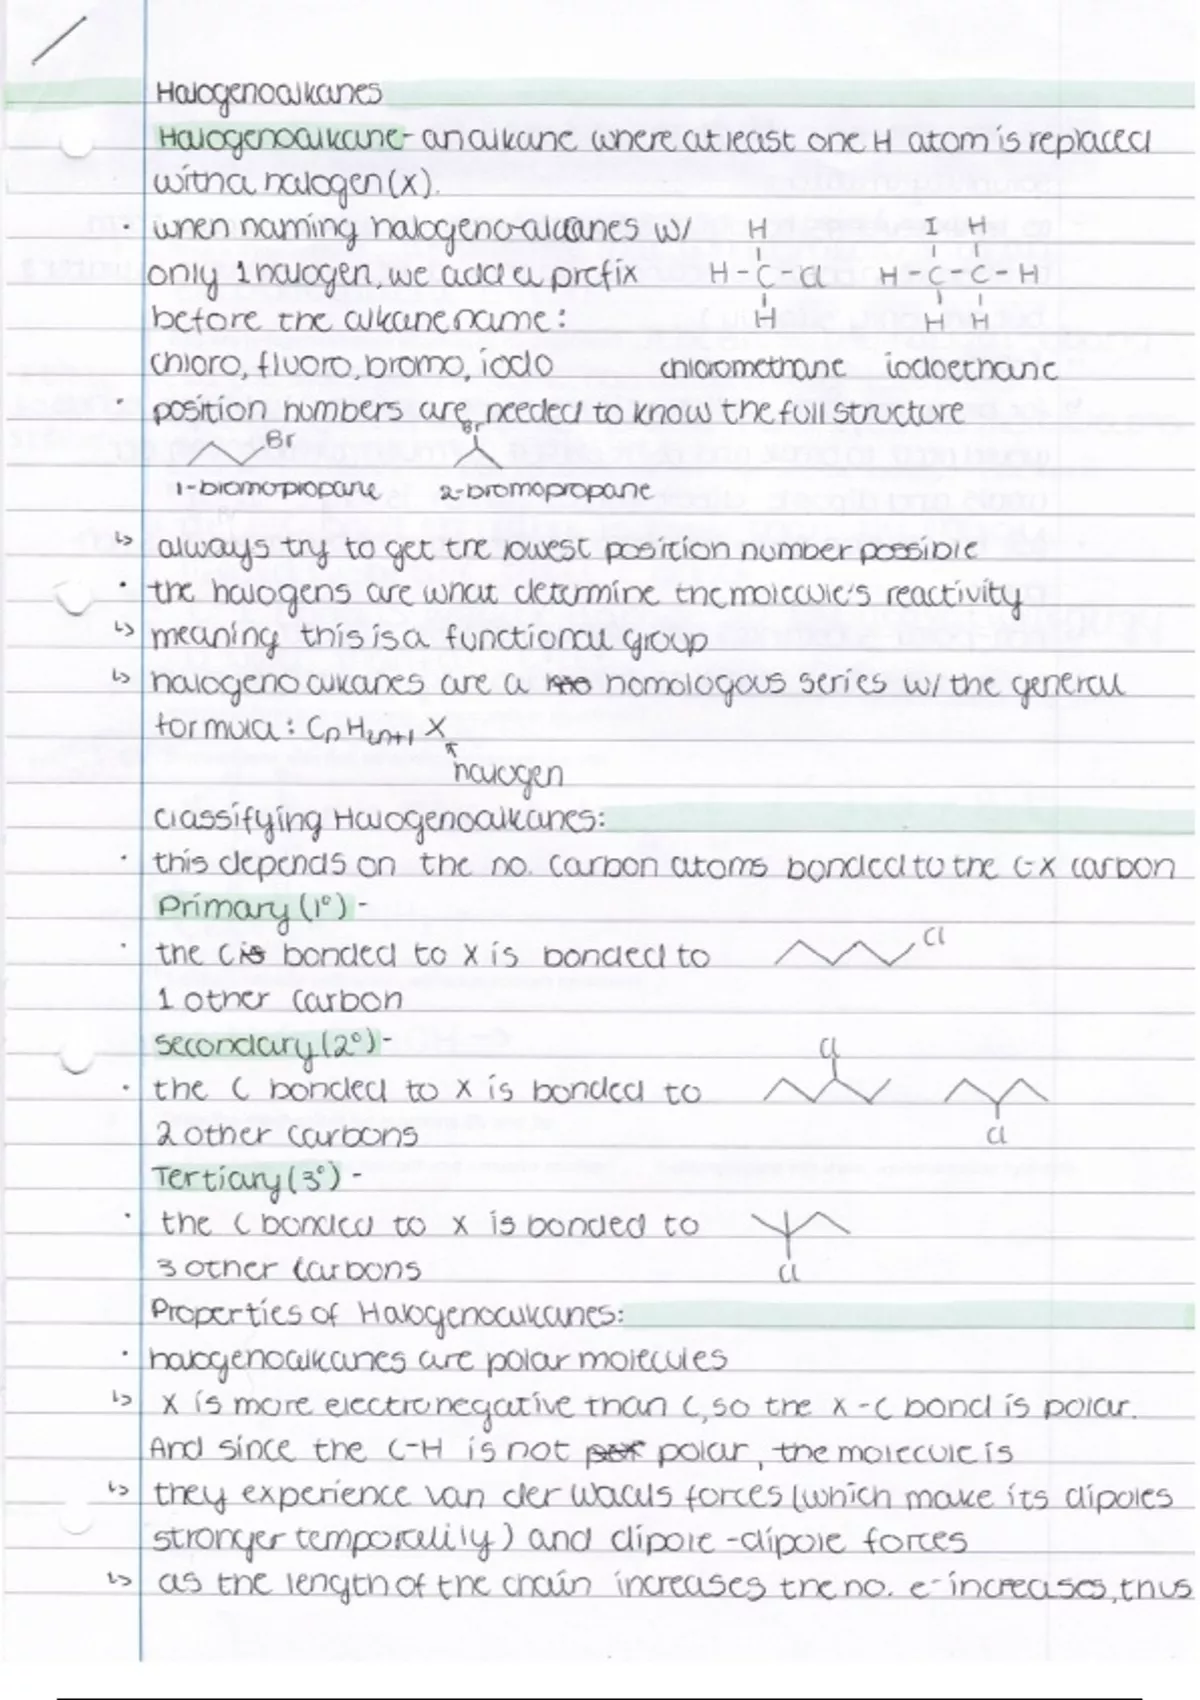 Halogenoalkanes
Halogenoalkane - an alkane where at least one H atom is replaced
with a halogen (X).
· when naming halogeno-alkanes w/
only 1 halogen, we add a prefix
before the alkane name:
H
H-C-Cl
H
I H
H-C-C-H
H H
chloro, fluoro, bromo, iodo
chloromethane iodoethane
· position numbers are needed to know the full structure
Br
Br
1-bromopropane 2-bromopropane
↳ always try to get the lowest position number possible
· the halogens are what determine the molecule's reactivity
↳ meaning this is a functional group
↳ halogenoalkanes are a homologous series w/ the general
formula: CnH2n+1 X
halogen
Classifying Halogenoalkanes:
· this depends on the no. carbon atoms bonded to the C-X carbon
Primary (1°) -
· the C is bonded to X is bonded to
1 other carbon
Cl
Secondary (2°) -
· the C bonded to X is bonded to
2 other carbons
Cl
Cl
Tertiary (3°) -
· the C bonded to X is bonded to
3 other carbons
Cl
Properties of Halogenoalkanes:
· halogenoalkanes are polar molecules
↳ X is more electronegative than C, so the X-C bond is polar.
And since the C-H is not polar, the molecule is
↳ they experience van der Waals forces (which make its dipoles
stronger temporalily) and dipole-dipole forces
↳ as the length of the chain increases the no. e⁻ increases, thus